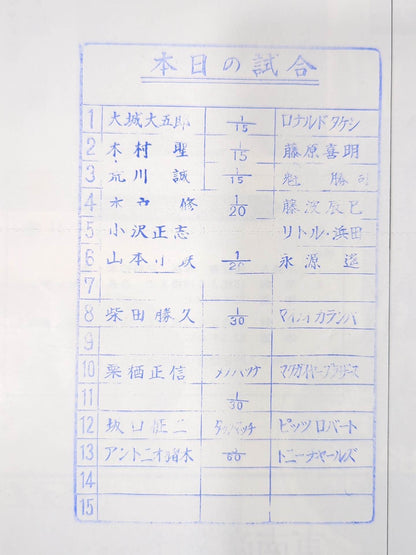 本日の試合
1 大城大五郎 1/15 ロナルドタケシ
2 木村聖 1/15 藤原喜明
3 荒川誠 1/15 魁勝司
4 木戸修 1/20 藤波辰巳
5 小沢正志 リトル・浜田
6 山本小鉄 1/20 永源遥
7
8 柴田勝久 1/30
9
10 栗栖正信
11 1/30
12 坂口征二 タッグマッチ ピッツロバート
13 アントニオ猪木 /60 トニーチャールズ
14
15